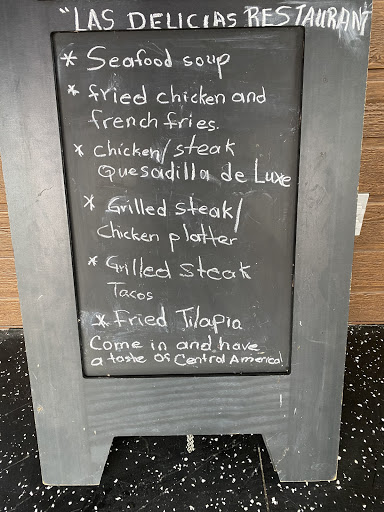 "LAS DELICIAS RESTAURANT
* Seafood soup
* fried chicken and
french fries.
* chicken/steak
Quesadilla de Luxe
* Grilled steak/
Chicken platter
* Grilled steak
Tacos
* Fried Tilapia
Come in and have
a taste of Central America!